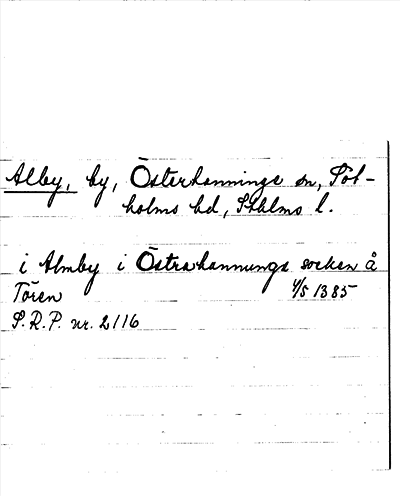 Alby, by, Österhanninge sn, Sot-
holms hd, Sthlms l.
i Almby i Östrahanninge socken å
Tören 4/5 1385
S.R.P. nr. 2116